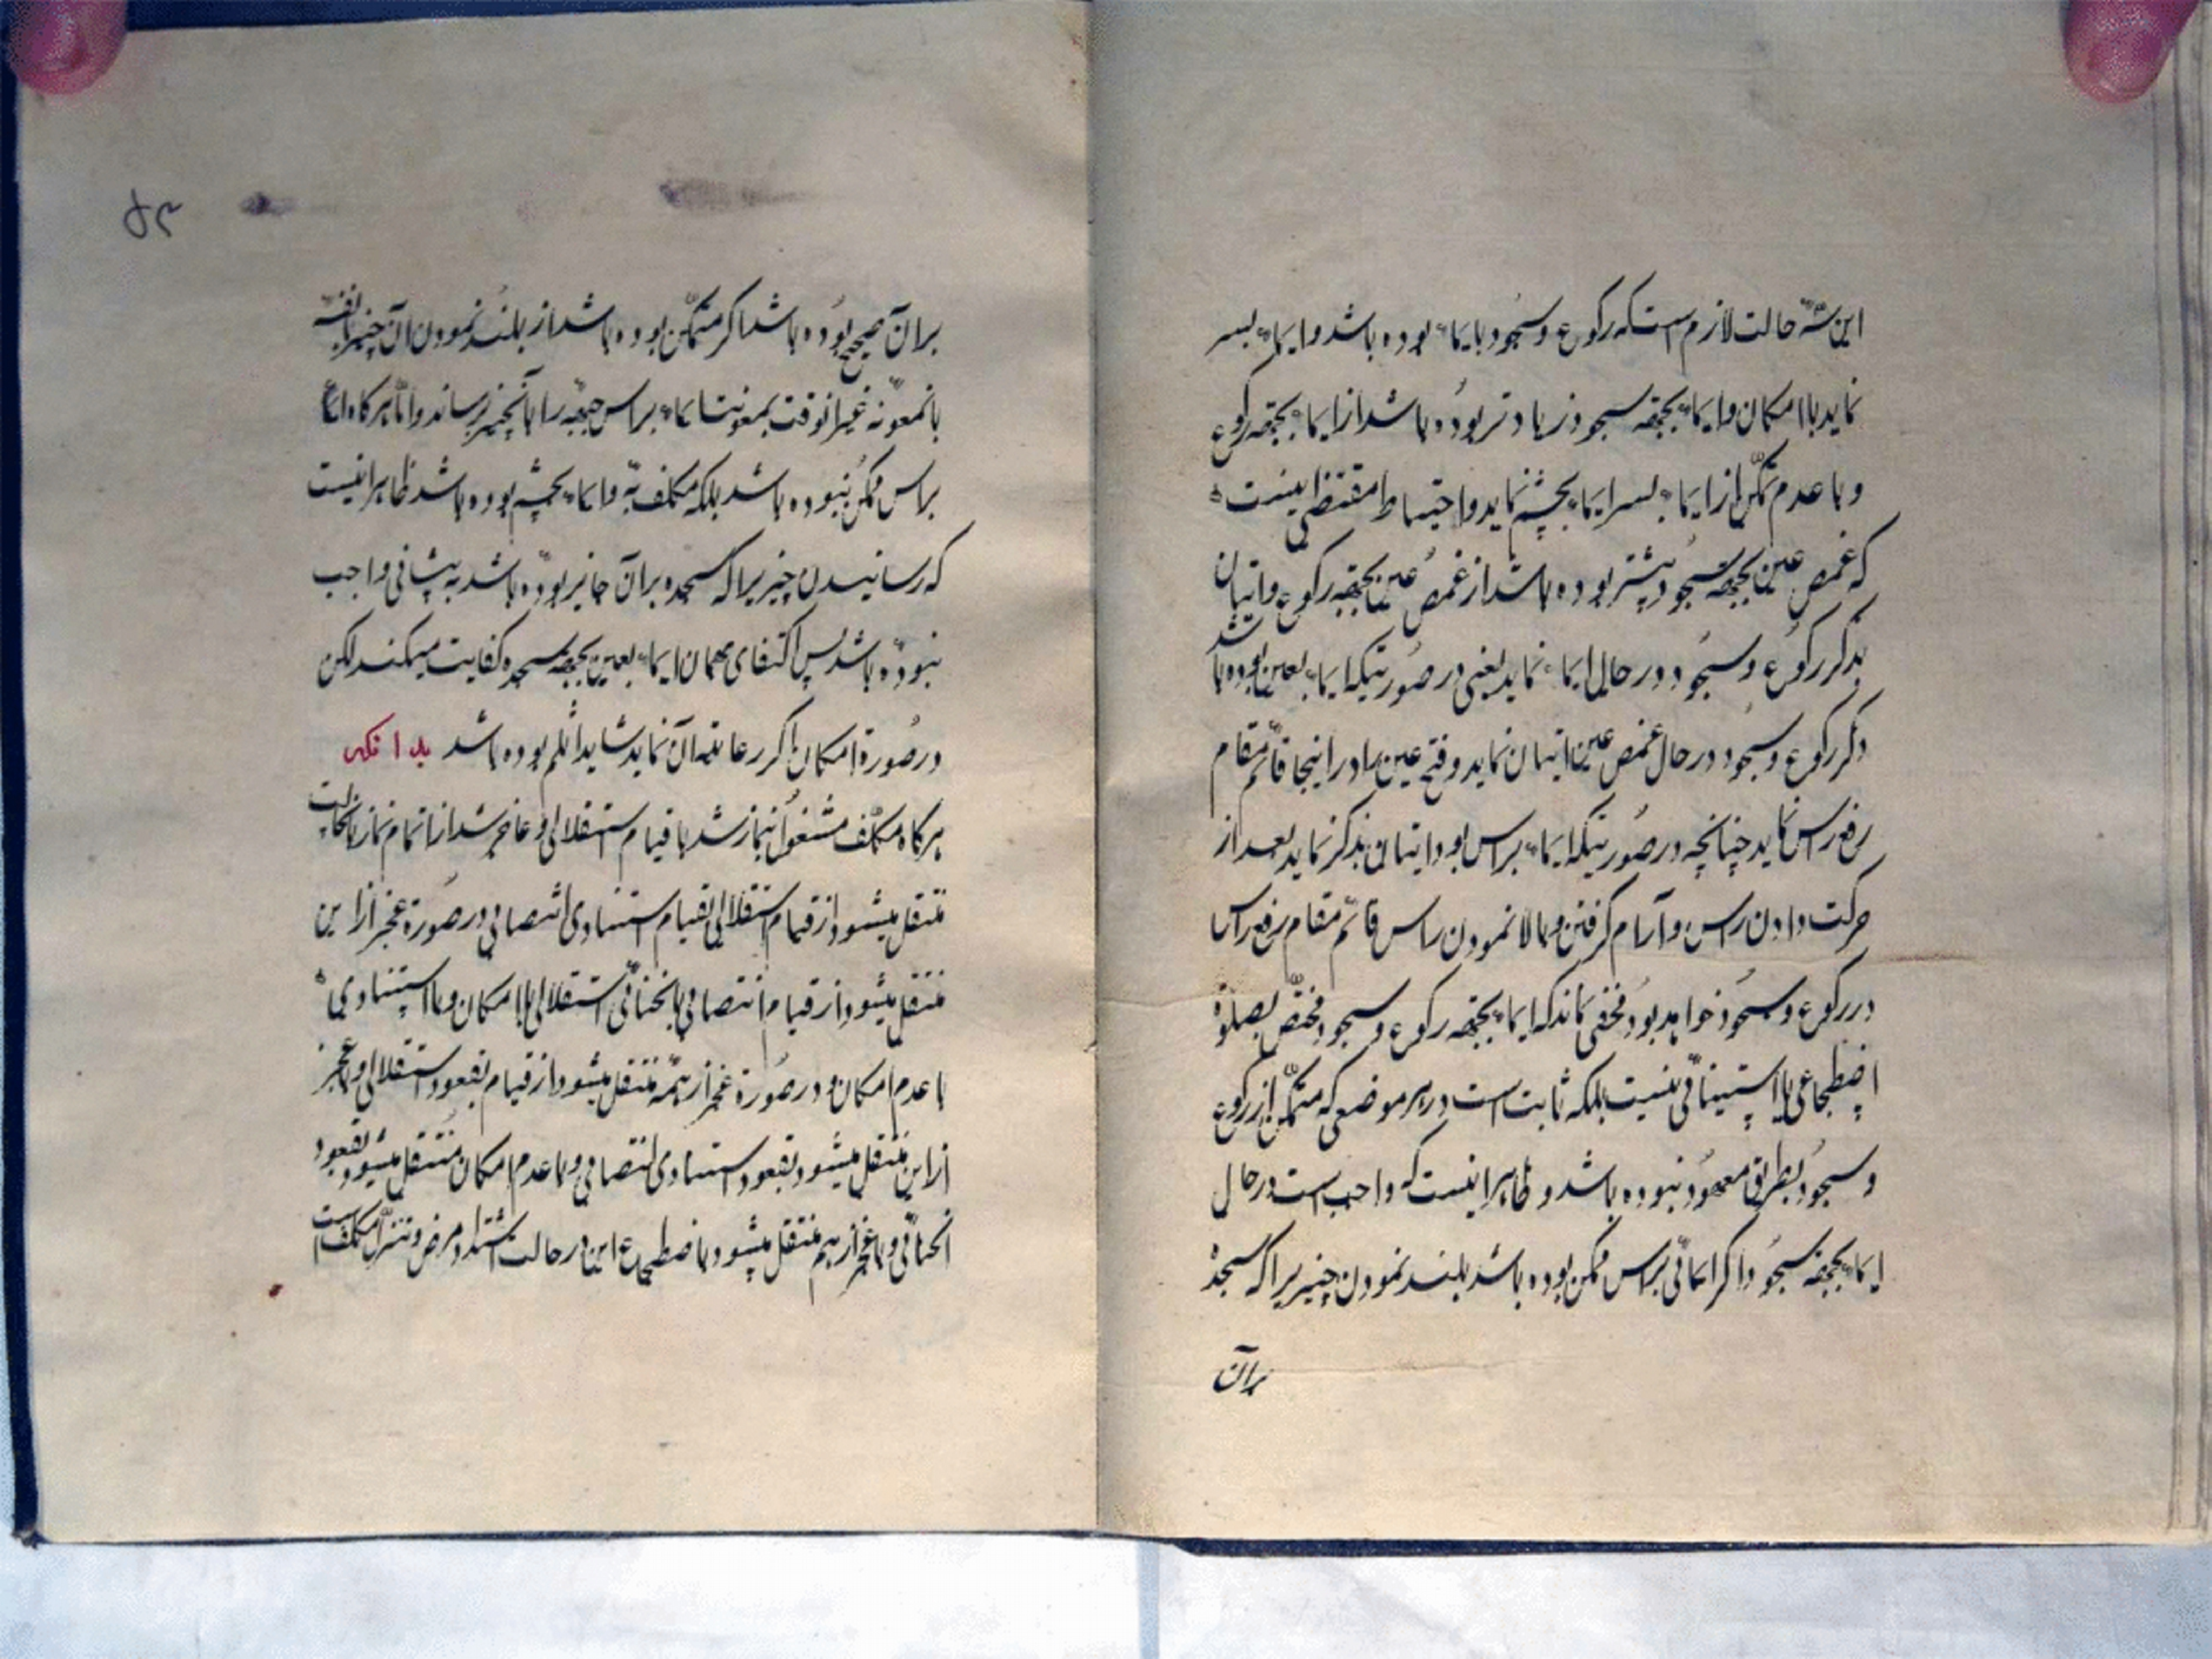 این سه حالت لازم است که رکوع و سجود بایماء بوده باشد و ایماء بسر
نماید با امکان و ایماء بجهة سجود زیادتر بوده باشد از ایماء بجهة رکوع
و با عدم تمکن از ایماء بسر ایماء بچشم نماید و احتیاط مقتضی اینست
که غمض عین بجهة سجود بیشتر بوده باشد از غمض عین بجهة رکوع و اتیان
بذکر رکوع و سجود در حال ایماء نماید یعنی در صورتیکه ایماء بعین بوده باشد
ذکر رکوع و سجود در حال غمض عین اتیان نماید و فتح عین را در اینجا قائم مقام
رفع راس نماید چنانچه در صورتیکه ایماء براس بود اتیان بذکر نماید بعد از
حرکت دادن راس و آرام گرفتن و بالا نمودن راس قائم مقام رفع راس
در رکوع و سجود خواهد بود مخفی نماند که ایماء بجهة رکوع و سجود مختص بصلوة
اضطجاعی یا استینائی نیست بلکه ثابت است در هر موضعی که متمکن از رکوع
و سجود بطریق معهود نبوده باشد و ظاهر اینست که واجب است در حال
ایماء بجهة سجود اگر ایمائی براس ممکن بوده باشد بلند نمودن چیزیرا که سجدهٔ
بران
بر آن صحیح بوده باشد اگر متمکن بوده باشد از بلند نمودن آن چیز بنفسه
یا بمعونه غیر انوقت بمعونت ایماء براس جبهه را بآنچیز برساند و اما هرگاه ایماء
براس ممکن نبوده باشد بلکه مکلف به و ایماء بچشم بوده باشد ظاهر اینست
که رسانیدن چیزیرا که سجده بر آن جایز بوده باشد به پیشانی واجب
نبوده باشد پس اکتفای بهمان ایماء بعین بجهة سجده کفایت میکند لکن
در صورة امکان اگر رعایت آن نماید شاید اسلم بوده باشد
هرگاه مکلف مشغول نماز شد با قیام استقلالی و عاجز شد از اتمام نماز بانحالت
منتقل میشود از قیام استقلالی بقیام استنادی انتصابی در صورة عجز از این
منتقل میشود از قیام انتصابی بانحنائی استقلالی با امکان و با استنادی
با عدم امکان و در صورة عجز از همه منتقل میشود از قیام بقعود استقلالی و با عجز
از این منتقل میشود بقعود استنادی انتصابی و با عدم امکان منتقل میشود بقعود
انحنائی و با عجز از هم منتقل میشود باضطجاع این در حالت اشتداد مرض و تنزل مکلف است